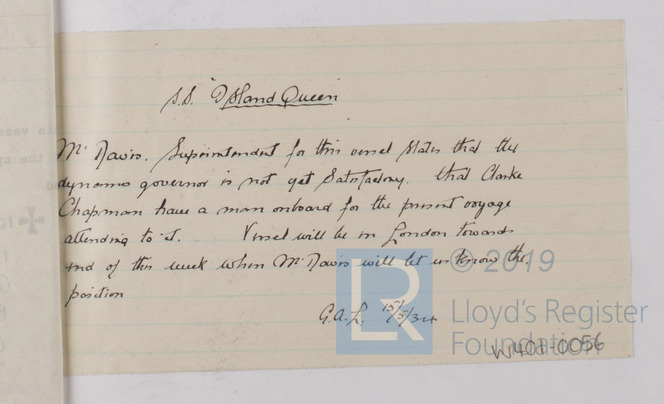 S.S. "Island Queen
Mr Davis. Superintendent for this vessel states that the
dynamo governor is not yet satisfactory. that Clarke
Chapman have a man onboard for the present voyage
attending to it. Vessel will be in London towards
end of this week when Mr Davis will let us know the
position
G.A.L. 15/5/34
© 2019
LR
Lloyd's Register
Foundation
W401-0056